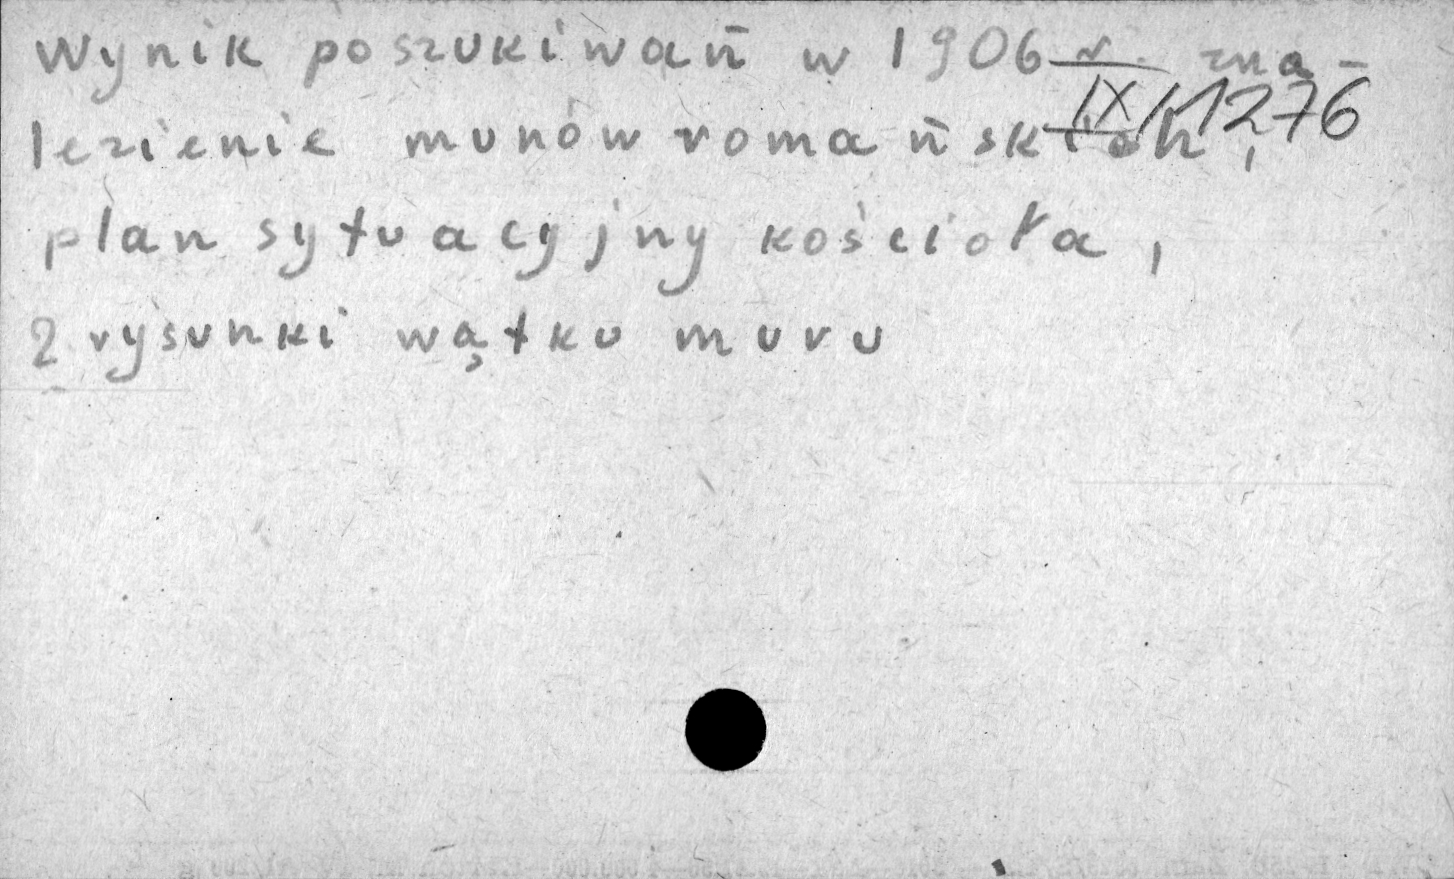 Wynik poszukiwań w 1906 r. zna-
IX/1276
lezienie murów romańskich,
plan sytuacyjny kościoła,
2 rysunki wątku muru